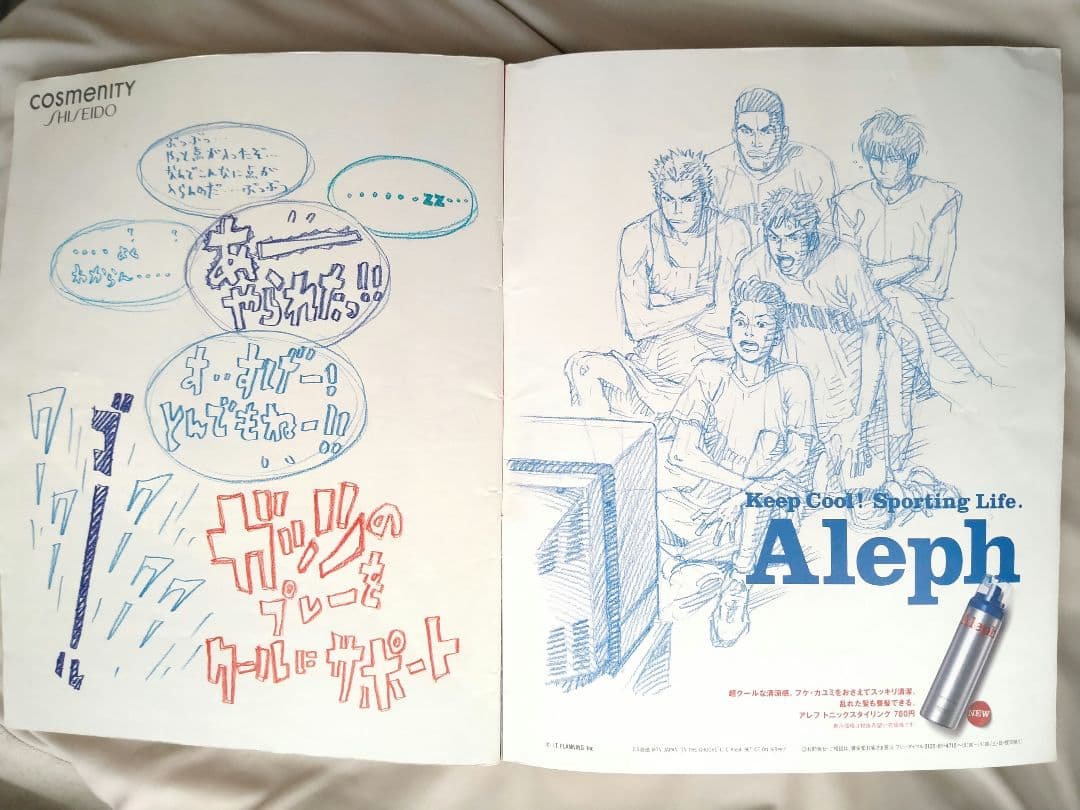 COSMENITY
SHISEIDO
ぶつぶつ…
やっと点が入ったぞ…
なんでこんなに点が
入らんのだ……ぶつぶつ
・・・・・・zz・・・
？　？
・・・・よく
わからん・・・・
あーー
やられたっ!!
お・・すげー!
とんでもねー!!
ゴール
ワ
ワ
ワ
ワ
ワ
ワ
ガッツの
プレーを
クールにサポート
Keep Cool! Sporting Life.
Aleph
Aleph
超クールな清涼感。フケ・カユミをおさえてスッキリ清潔。
乱れた髪も整髪できる。
アレフ トニックスタイリング 780円
NEW
I.T.PLANNING Inc.